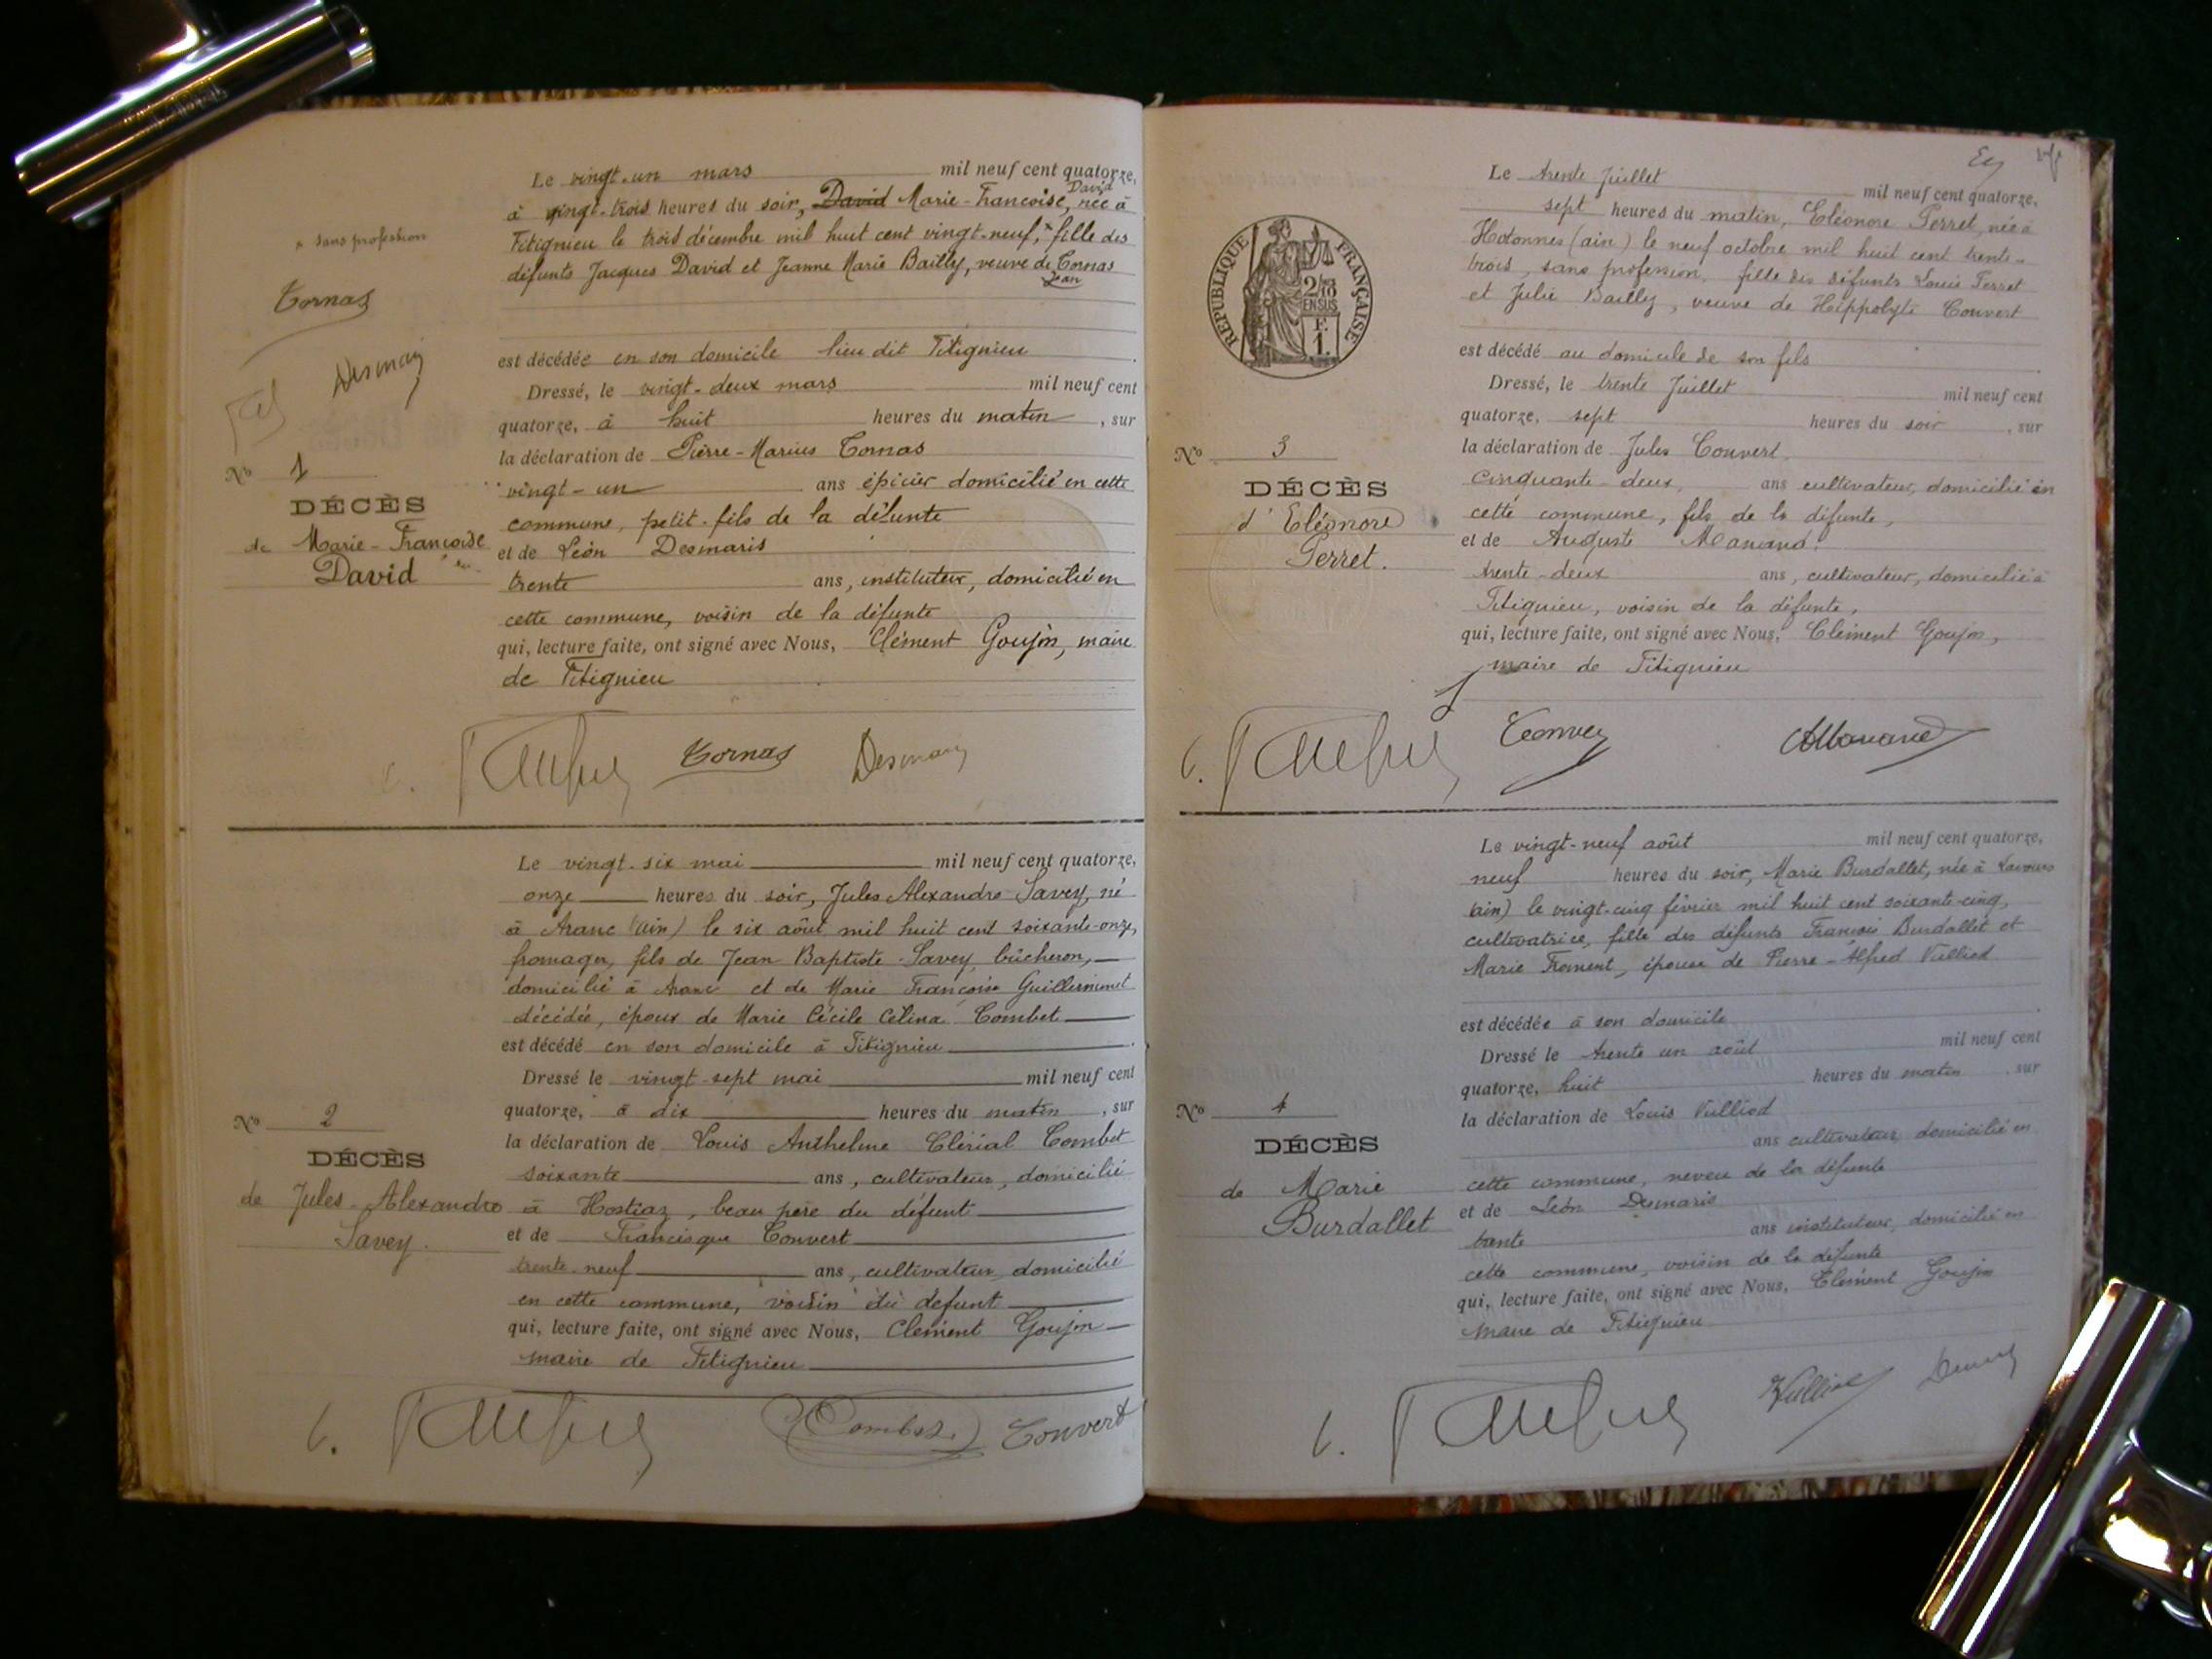 * sans profession
Cornas
Desmaris
Le vingt-un mars mil neuf cent quatorze,
à vingt-trois heures du soir, David Marie-Francoise, David née à
Titignieu le trois décembre mil huit cent vingt-neuf, * fille des
défunts Jacques David et Jeanne Marie Bailly, veuve de Cornas
Jean
est décédée en son domicile lieu dit Titignieu
Dressé, le vingt-deux mars mil neuf cent
quatorze, à huit heures du matin, sur
la déclaration de Pierre-Marius Cornas
vingt-un ans épicier domicilié en cette
commune, petit-fils de la défunte
et de Léon Desmaris
trente ans, instituteur, domicilié en
cette commune, voisin de la défunte
qui, lecture faite, ont signé avec Nous, Clément Goujon, maire
de Titignieu
No 1
DÉCÈS
de Marie-Francoise
David
Cornas Desmaris
Le vingt-six mai mil neuf cent quatorze,
onze heures du soir, Jules Alexandre Savey, né
à Aranc (ain) le six août mil huit cent soixante-onze,
fromager, fils de Jean Baptiste Savey, bûcheron,
domicilié à Aranc et de Marie Françoise Guillerminet
décédée, époux de Marie Cécile Célina Combet
est décédé en son domicile à Titignieu
Dressé le vingt-sept mai mil neuf cent
quatorze, à dix heures du matin, sur
la déclaration de Louis Anthelme Clérial Combet
soixante ans, cultivateur, domicilié
à Hostiaz, beau père du défunt
et de Francisque Convert
trente-neuf ans, cultivateur, domicilié
en cette commune, voisin du défunt
qui, lecture faite, ont signé avec Nous, Clément Goujon
maire de Titignieu
No 2
DÉCÈS
de Jules-Alexandre
Savey.
C. Combet Convert
RÉPUBLIQUE FRANÇAISE
2/10
EN SUS
F.
1.
Le trente Juillet mil neuf cent quatorze,
sept heures du matin, Eléonore Perret, née à
Hotonnes (ain) le neuf octobre mil huit cent trente-
trois, sans profession, fille des défunts Louis Perret
et Julie Bailly, veuve de Hippolyte Convert
est décédé au domicile de son fils
Dressé, le trente Juillet mil neuf cent
quatorze, sept heures du soir, sur
la déclaration de Jules Convert
cinquante-deux, ans cultivateur, domicilié en
cette commune, fils de la défunte,
et de Auguste Manand.
trente-deux ans, cultivateur, domicilié à
Titignieu, voisin de la défunte,
qui, lecture faite, ont signé avec Nous, Clément Goujon,
maire de Titignieu
No 3
DÉCÈS
d'Eléonore
Perret.
C. Convert
Le vingt-neuf août mil neuf cent quatorze,
neuf heures du soir, Marie Burdallet, née à Lavours
(ain) le vingt-cinq février mil huit cent soixante-cinq,
cultivatrice, fille des défunts François Burdallet et
Marie Froment, épouse de Pierre-Alfred Vulliod
est décédée à son domicile
Dressé le trente un août mil neuf cent
quatorze, huit heures du matin, sur
la déclaration de Louis Vulliod
ans cultivateur, domicilié en
cette commune, neveu de la défunte
et de Léon Desmaris
trente ans instituteur, domicilié en
cette commune, voisin de la défunte
qui, lecture faite, ont signé avec Nous, Clément Goujon
maire de Titignieu
No 4
DÉCÈS
de Marie
Burdallet
C. Vulliod